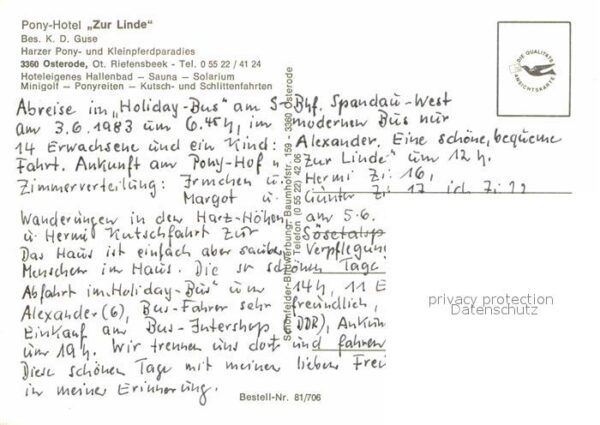 Pony-Hotel „Zur Linde“
Bes. K. D. Guse
Harzer Pony- und Kleinpferdparadies
3360 Osterode, Ot. Riefensbeek - Tel. 0 55 22 / 41 24
Hoteleigenes Hallenbad – Sauna – Solarium
Minigolf – Ponyreiten – Kutsch- und Schlittenfahrten
DIE QUALITÄTS ANSICHTSKARTE
Abreise im „Holiday-Bus“ am S-Bhf. Spandau-West
am 3.6.1983 um 6.45 h, im modernen Bus nur
14 Erwachsene und ein Kind: Alexander. Eine schöne, bequeme
Fahrt. Ankunft am Pony-Hof „Zur Linde“ um 12 h.
Zimmerverteilung: Irmchen u. Hermi Zi. 16,
Margot u. Günter Zi. 17 ich Zi.
Wanderungen in den Harz-Höhen am 5.6.
u. Hermi Kutschfahrt zur Sösetalsp
Das Haus ist einfach aber sauber Verpflegung
Menschen im Haus. Die so schönen Tage
Abfahrt im „Holiday-Bus“ um 14 h, 11 E
Alexander (6), Bus-Fahrer sehr freundlich,
Einkauf am Bus-Intershop DDR), Ankun
um 19 h. Wir trennen uns dort und fahren
Diese schönen Tage mit meinen lieben Frei
in meiner Erinnerung.
Schönfelder-Bildwerbung, Baumhofstr. 159 - 3360 Osterode
Telefon (0 55 22) 42 06
privacy protection
Datenschutz
Bestell-Nr. 81/706